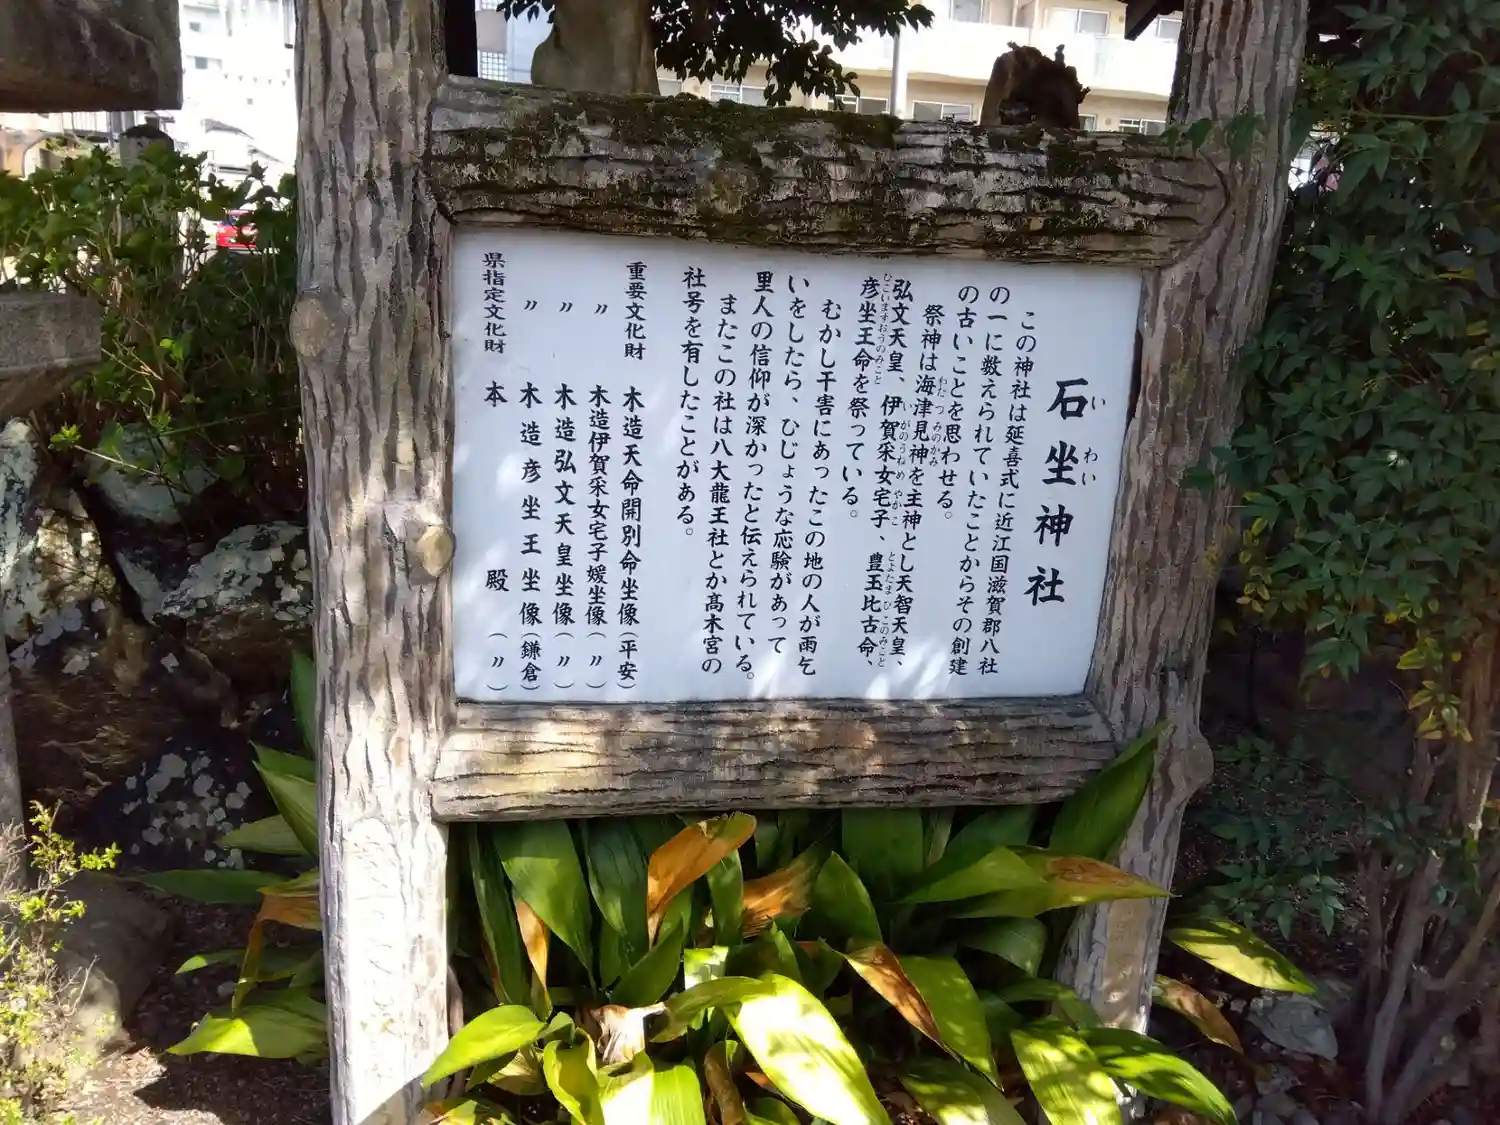 石坐神社
い わい
この神社は延喜式に近江国滋賀郡八社
の一に数えられていたことからその創建
の古いことを思わせる。
祭神は海津見神を主神とし天智天皇、
わたつみのかみ
弘文天皇、伊賀采女宅子、豊玉比古命、
いがのうねめ やかこ とよたまひこのみこと
彦坐王命を祭っている。
ひこいますおうのみこと
むかし干害にあったこの地の人が雨乞
いをしたら、ひじょうな応験があって
里人の信仰が深かったと伝えられている。
またこの社は八大龍王社とか高木宮の
社号を有したことがある。
重要文化財 木造天命開別命坐像（平安）
〃 木造伊賀采女宅子媛坐像（〃）
〃 木造弘文天皇坐像（〃）
〃 木造彦坐王坐像（鎌倉）
県指定文化財 本殿（〃）